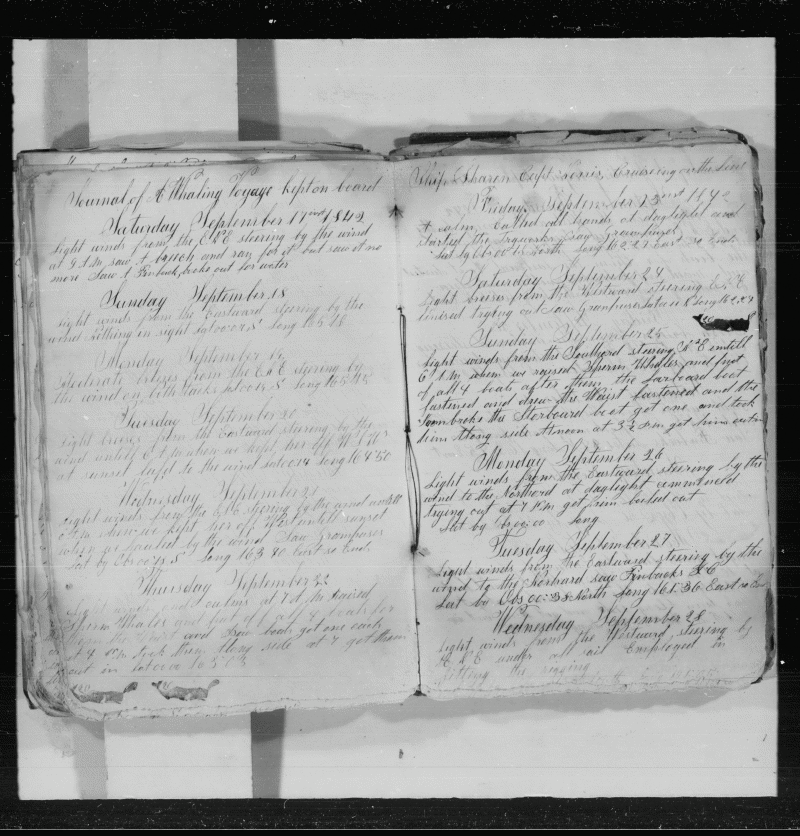 Journal of A Whaling Voyage kept on board
Saturday September 17 1842
Light winds from the E&E steering by the wind
at 9 A.M. saw A breech and ran for it but saw it no
more Saw A Finback looks out for water
Sunday September 18
Light winds from the Eastward steering by the
wind Nothing in sight Lat 00 07 S Long 165
Monday September 19
Moderate breezes from the E&E steering by
the wind on both tacks Lat 00 14 S Long 165 45
Tuesday September 20
Light breezes from the Eastward steering by the
wind untill A.M. when we kept her off W
at sunset Lufd to the wind Lat 00 14 Long 164 50
Wednesday September 21
Light winds from the E&E steering by the wind untill
when we kept her off West untill sunset
when we hauled by the wind Saw Grampuses
Lat by Ob 00 15 S Long 163 80 East so Ends
Thursday September 22
Light winds and calms at 7 A.M. raised
Sperm Whales and put off 4 boats for
them the Waist and Bow boats got one each
at 4 P.M. took them along side at 7 got them
cut in Lat 00 00 165 03
Ship Sharon Capt Norris Cruising on the Line
Friday September 23 1842
A calm, Called all hands at daylight and
started the tryworks Saw Grampuses
Lat by Ob 00 11 North Long 162 27 East so Ends
Saturday September 24
Light breeses from the Westward steering E
finised trying out Saw Grampuses Lat Long 162 24
Sunday September 25
Light winds from the Southward steering N&E untill
6 A.M. when we raised Sperm Whales and put
off all 4 boats after them the Larboard boat
fastened and drew the Waist fastened and the
Iron broke the Starboard boat got one and took
him Along side At noon at 3½ P.M. got him cut in
Monday September 26
Light winds from the Eastward steering by the
wind to the Northord at daylight commenced
trying out at 7 P.M. got him boiled out
Lat by Long
Tuesday September 27
Light winds from the Eastward steering by the
wind to the Northard saw Finbacks &C
Lat by Obs 00=38 North Long 161=36 East so Ends
Wednesday September 28
Light winds from the Westward steering by
E&E under all sail Employed in
the rigging